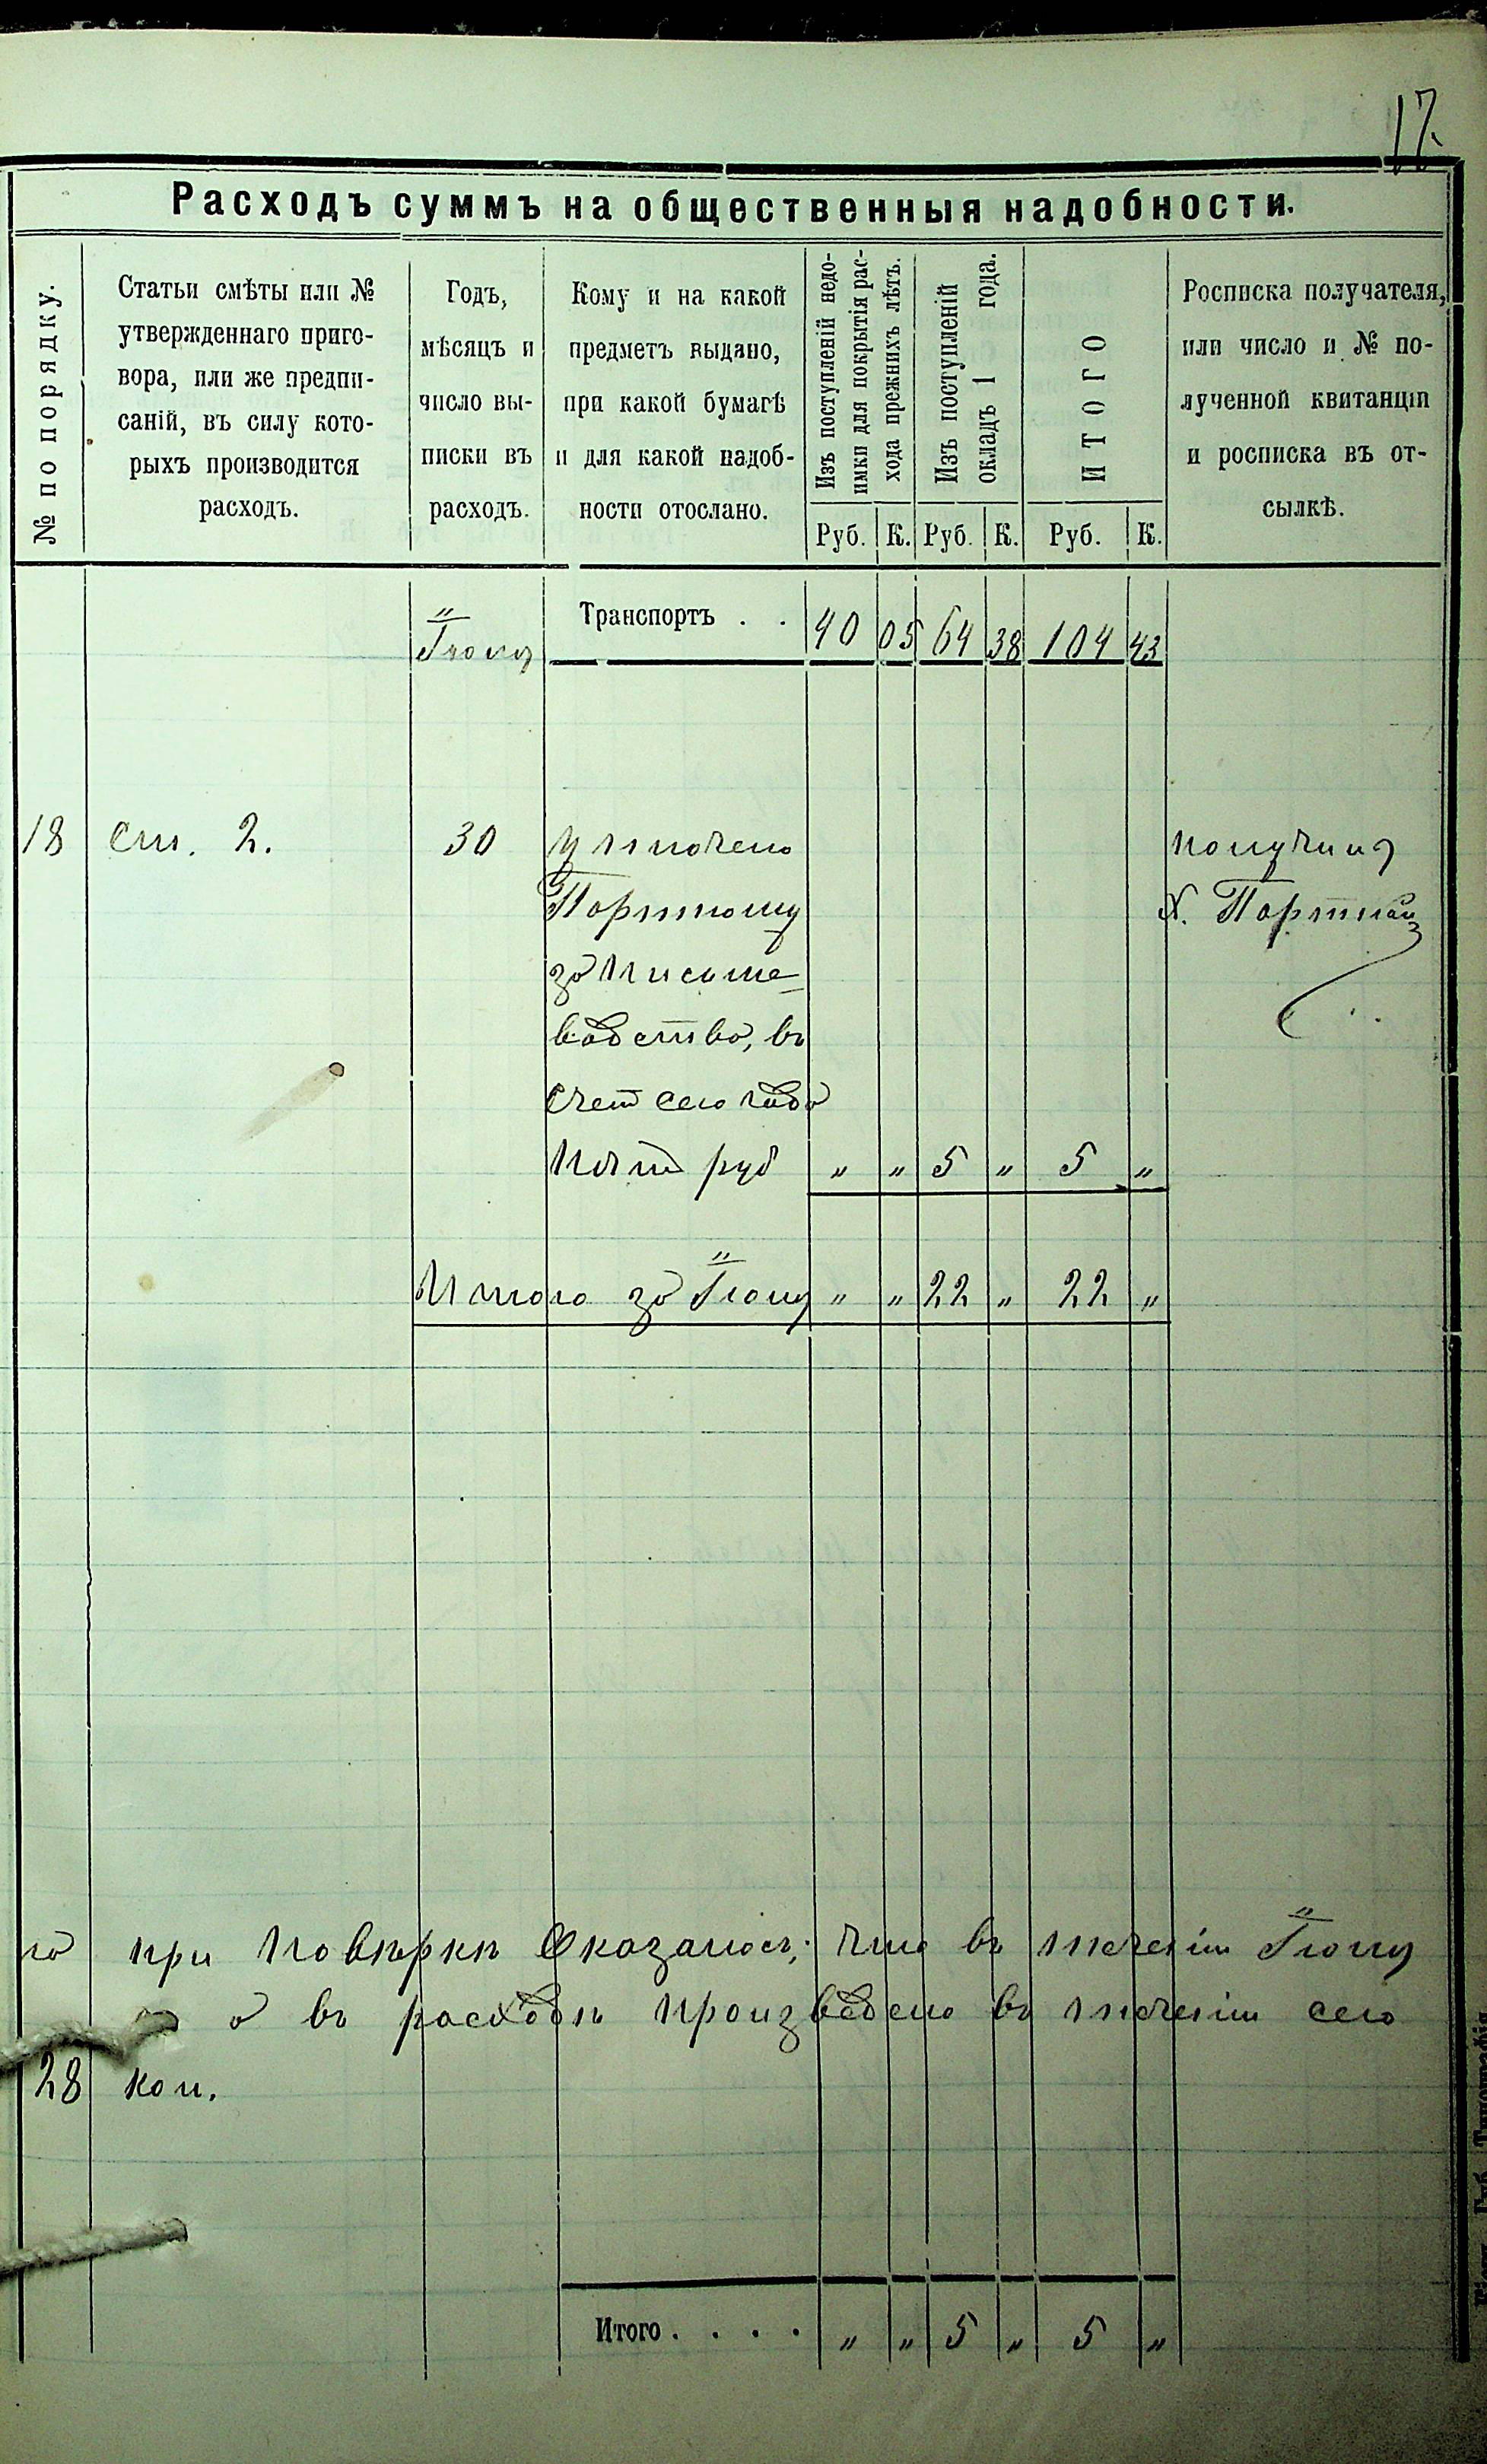 17.
Расходъ суммъ на общественныя надобности.
№ по порядку.
Статьи смѣты или №
утвержденнаго приго-
вора, или же предпи-
саній, въ силу кото-
рыхъ производится
расходъ.
Годъ,
мѣсяцъ и
число вы-
писки въ
расходъ.
Кому и на какой
предметъ выдано,
при какой бумагѣ
и для какой надоб-
ности отослано.
Изъ поступленій недо-
имки для покрытія рас-
хода прежнихъ лѣтъ.
Изъ поступленій
окладъ 1 года.
ИТОГО
Росписка получателя,
или число и № по-
лученной квитанціи
и росписка въ от-
сылкѣ.
Руб. К. Руб. К. Руб. К.
Іюнь Транспортъ . . 40 05 64 38 104 43
18 ст. 2. 30 уплочено получил
Портному Х. Портной
за письме-
водство, въ
счет сего года
пять руб " " 5 " 5 "
Итого за Іюнь " " 22 " 22 "
при повѣркѣ оказалось, что въ теченіи Іюня
а въ расходѣ произведено въ теченіи сего
28 коп.
Итого . . . . " " 5 " 5 "